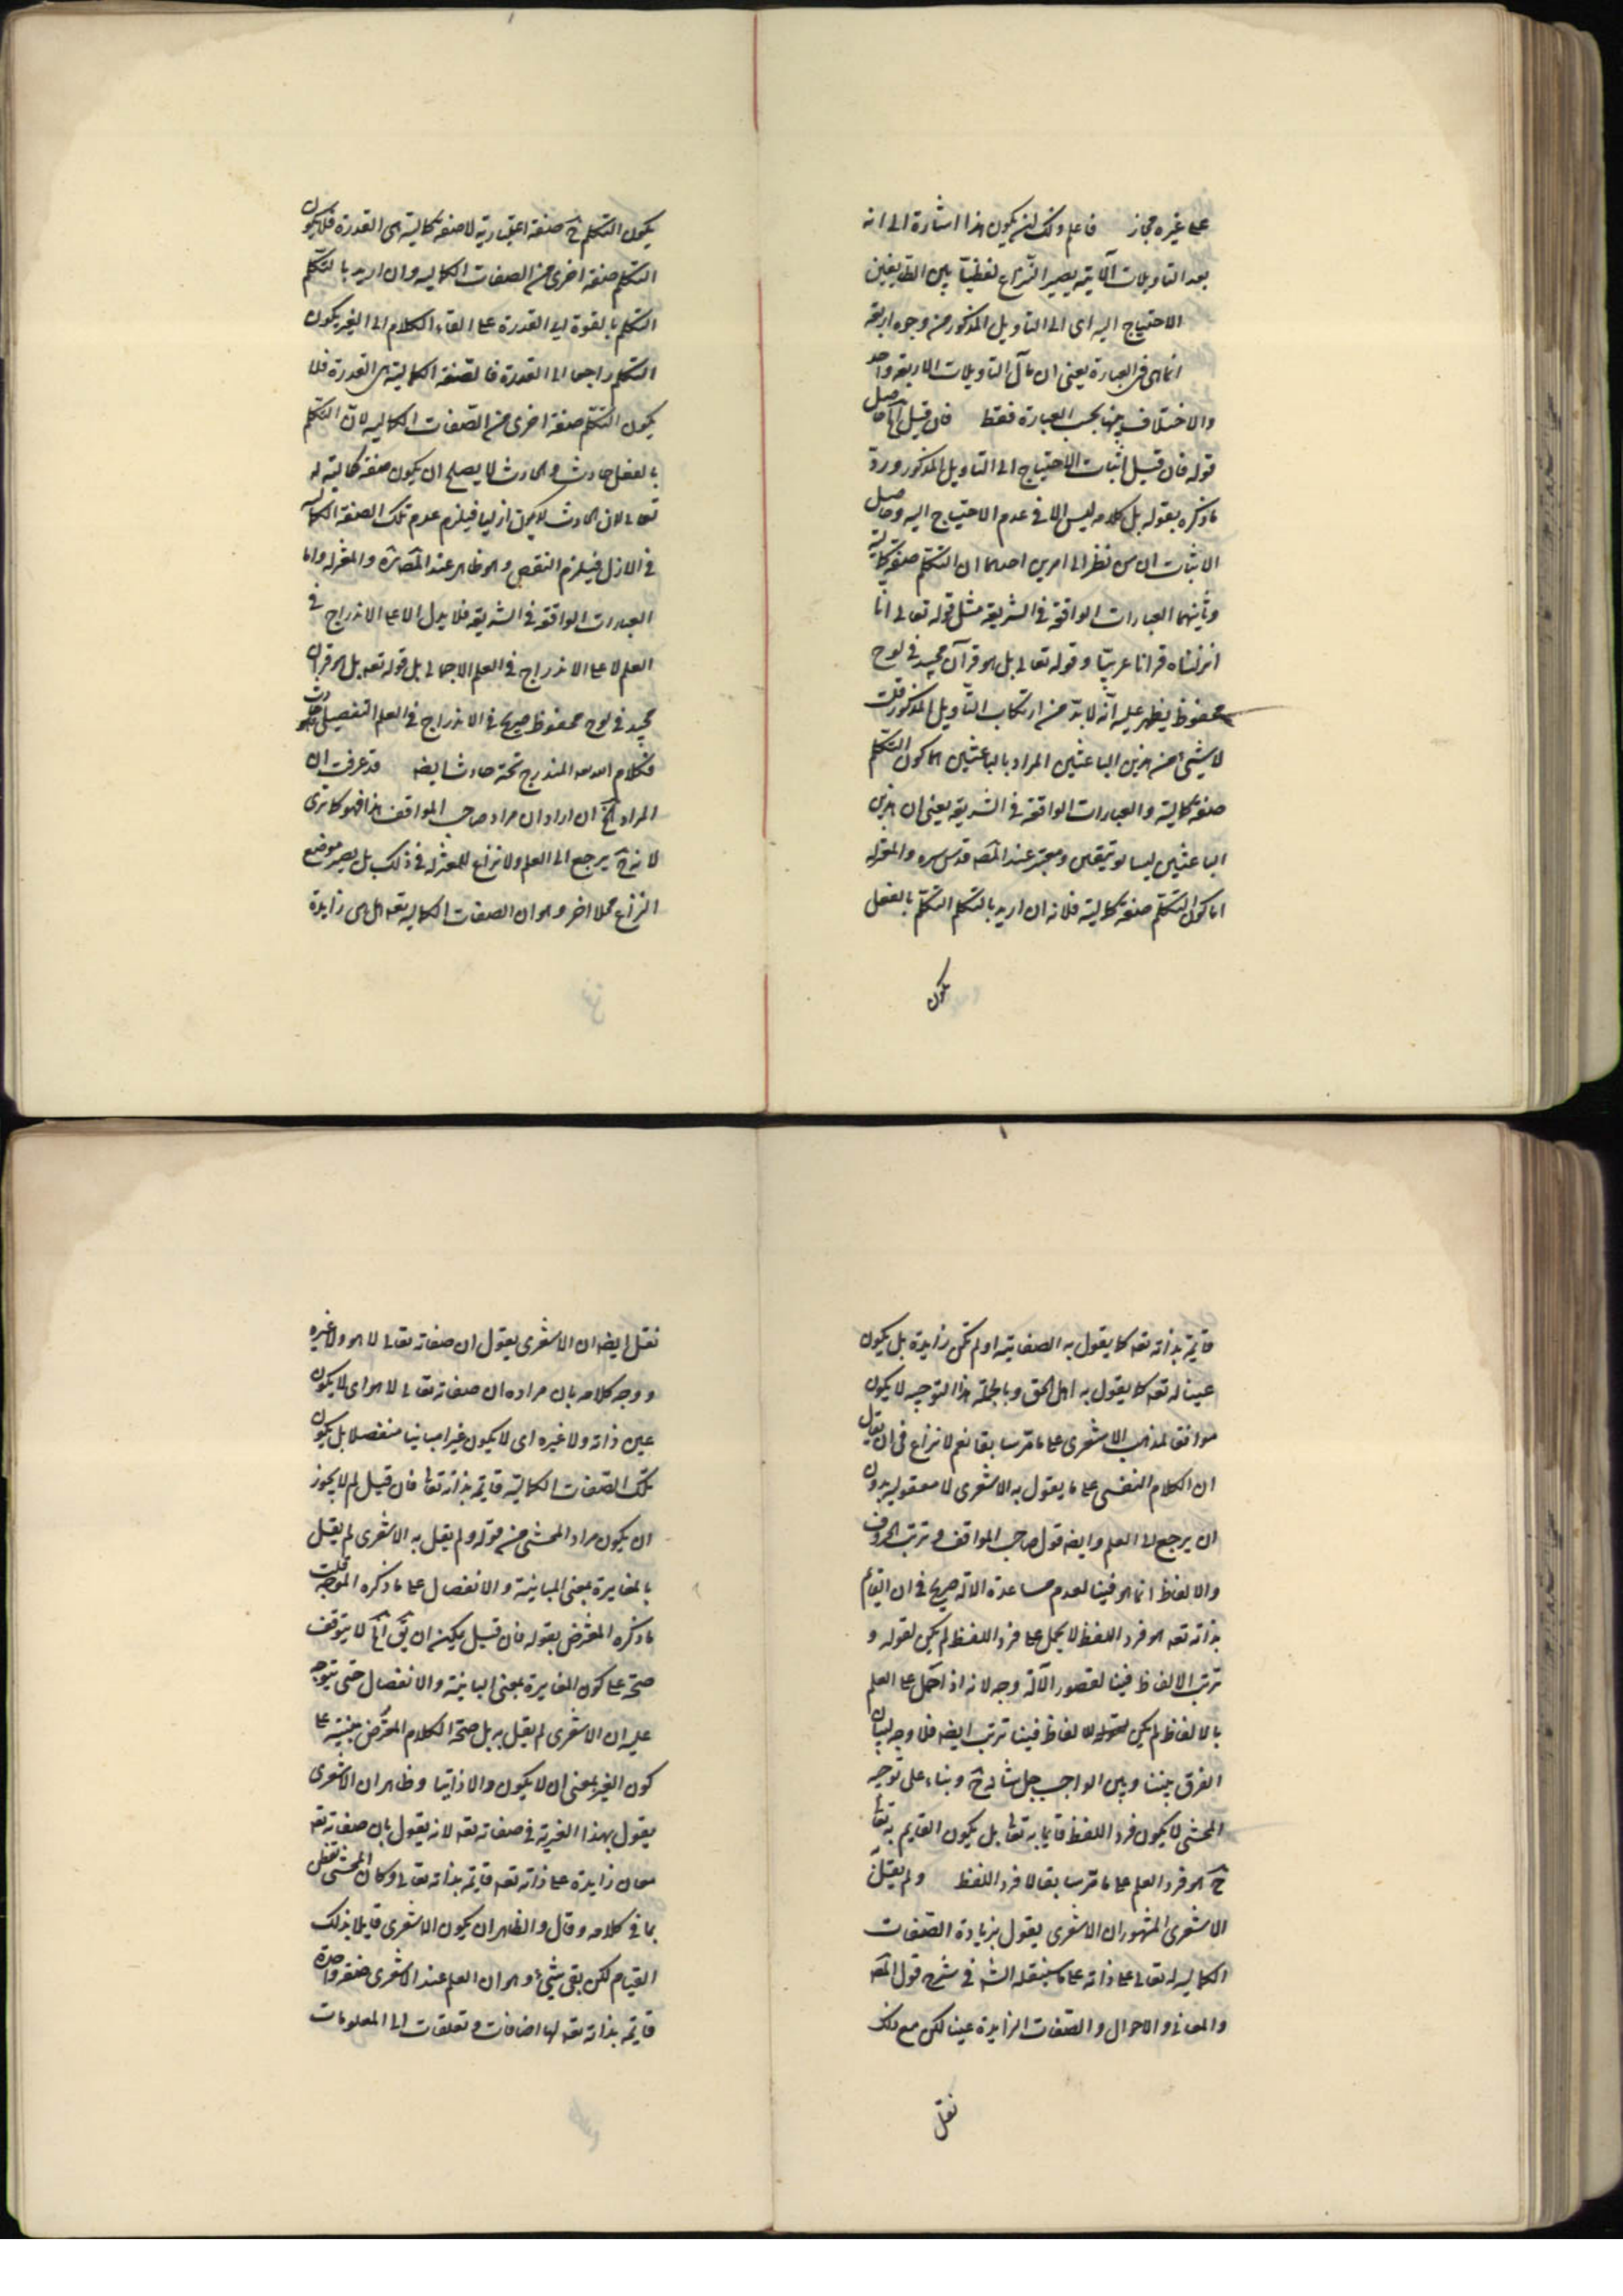 على غيره مجاز فاعلم ذلك يكون هذا اشارة الى انه
بعد التاويلات الآتية يصير النزاع لفظيا بين الطريفين
الاحتياج اليه اى الى التاويل المذكور من وجوه اربعة
انما هى فى العبارة يعنى ان مآل التاويلات الاربعة واحد
والاختلاف بينها بحسب العبارة فقط فان قيل الخ حاصل
قوله فان قيل اثبات الاحتياج الى التاويل المذكور ورد
ما ذكره بقوله بل كلامه ليس الا فى عدم الاحتياج اليه وحاصل
الاثبات ان من نظر الى امرين احدهما ان التكلم صفة كمالية
وثانيهما العبارات الواقعة فى الشريعة مثل قوله تعالى انا
انزلناه قرانا عربيا وقوله تعالى بل هو قرآن مجيد فى لوح
محفوظ يظهر عليه انه لا بد من ارتكاب التاويل المذكور قلت
لا شيئ من هذين الباعثين المراد بالباعثين هما كون التكلم
صفة كمالية والعبارات الواقعة فى الشريعة يعنى ان هذين
الباعثين ليسا بوثيقين ومعتبر عند المص قدس سره والمعتزلة
اما كون التكلم صفة كمالية فلانه ان اريد بالتكلم التكلم بالفعل
يكون
يكون التكلم ح صفة اعتبارية لا صفة كمالية هى القدرة فلا يكون
التكلم صفة اخرى من الصفات الكمالية وان اريد بالتكلم
التكلم بالقوة اى القدرة على القاء الكلام الى الغير يكون
التكلم راجعا الى القدرة فالصفة الكمالية هى القدرة فلا
يكون التكلم صفة اخرى من الصفات الكمالية لان التكلم
بالفعل حادث والحادث لا يصلح ان يكون صفة كمالية له
تعالى لان الحادث لا يكون ازليا فيلزم عدم تلك الصفة الكمالية
فى الازل فيلزم النقص وهو ظاهر عند الاشاعرة والمعتزلة واما
العبارات الواقعة فى الشريعة فلا يدل الا على الاندراج فى
العلم لا على الاندراج فى العلم الاجمالى بل قوله تعه بل هو قران
مجيد فى لوح محفوظ صريح فى الاندراج فى العلم التفصيلى وهو حادث
فكلام الله المندرج تحته حادث ايضه قد عرفت ان
المراد الخ ان اراد ان مراد صاحب المواقف هذا فهو كما ترى
لانه ح يرجع الى العلم ولا نزاع للمعتزلة فى ذلك بل يصير موضع
النزاع محلا اخر وهو ان الصفات الكمالية تعه هل هى زايدة
قايمة بذاته تعه كما يقول به الصفاتية او لم تكن زايدة بل يكون
عينا له تعه كما يقول به اهل الحق وبالجملة هذا التوجيه لا يكون
موافقا لمذهب الاشعرى على ما مر سابقا نعم لا نزاع فى ان يقال
ان الكلام النفسى على ما يقول به الاشعرى لا معقولية بدون
ان يرجع الى العلم وايضه قول صاحب المواقف وترتب الحروف
والالفاظ انما هو فينا لعدم مساعدة الآلة صريح فى ان القايم
بذاته تعه هو فرد اللفظ لا يحمل على فرد اللفظ لم يكن لقوله و
ترتب الالفاظ فينا لقصور الآلة وجه لانه اذا حمل على العلم
بالالفاظ لم يكن للالفاظ فينا ترتب ايضه فلا وجه لبيان
الفرق بيننا وبين الواجب جل شانه ح وبناء على توجيه
المحشى لا يكون فرد اللفظ قايما به تعالى بل يكون القايم به تعالى
ح هو فرد العلم على ما مر سابقا لا فرد اللفظ ولم يقل
الاشعرى المشهور ان الاشعرى يقول بزيادة الصفات
الكمالية له تعالى على ذاته على ما سينقله الشه فى شرح قول المصه
والمعانى والاحوال والصفات الزايدة عينا لكن مع ذلك
نقل
نقل ايضه ان الاشعرى يقول ان صفاته تعالى لا هو ولا غيره
ووجه كلامه بان مراده ان صفاته تعالى لا هو اى لا يكون
عين ذاته ولا غيره اى لا يكون غيرا مباينا منفصلا بل يكون
تلك الصفات الكمالية قايمة بذاته تعالى فان قيل لم لا يجوز
ان يكون مراد المحشى من قوله ولم يقل به الاشعرى لم يقل
بالمغايرة بمعنى المباينة والانفصال على ما ذكره الموجه قلت
ما ذكره المعترض بقوله فان قيل يمكن ان يق الخ لا يتوقف
صحته على كون المغايرة بمعنى المباينة والانفصال حتى يتوجه
عليه ان الاشعرى لم يقل به بل صحة الكلام المعترض مبنية على
كون الغير بمعنى ان لا يكون والا ذاتيا وظاهر ان الاشعرى
يقول بهذا الغيرية فى صفاته تعه لانه يقول بان صفاته تعه
معان زايدة على ذاته تعه قايمة بذاته تعالى وكان المحشى تفطن
بما فى كلامه وقال والظاهر ان يكون الاشعرى قايلا بذلك
القيام لكن بقى شيئ وهو ان العلم عند الاشعرى صفة واحدة
قايمة بذاته تعه لها اضافات وتعلقات الى المعلومات